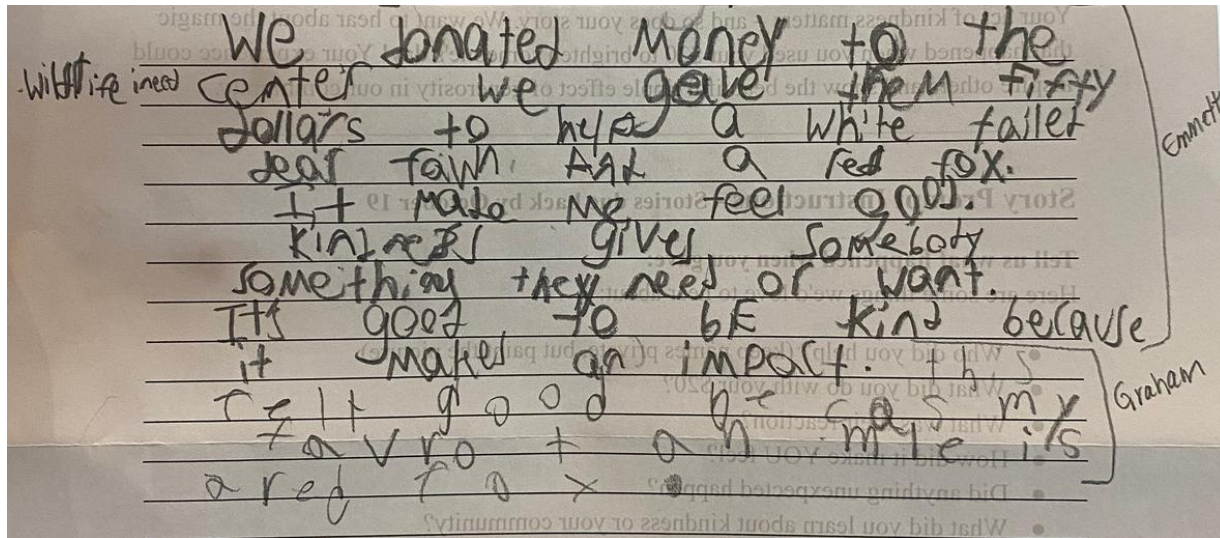 We donated money to the
wildlife ineed center we gave them fifty
dollars to help a white tailed
dear fawn. And a red fox.
It made me feel good.
Kindness gives somebody
something they need or want.
Its good to bE kind because
it makes an impact. this
felt good be cas my
favrot an mle is
a red fox
Emmett
Graham